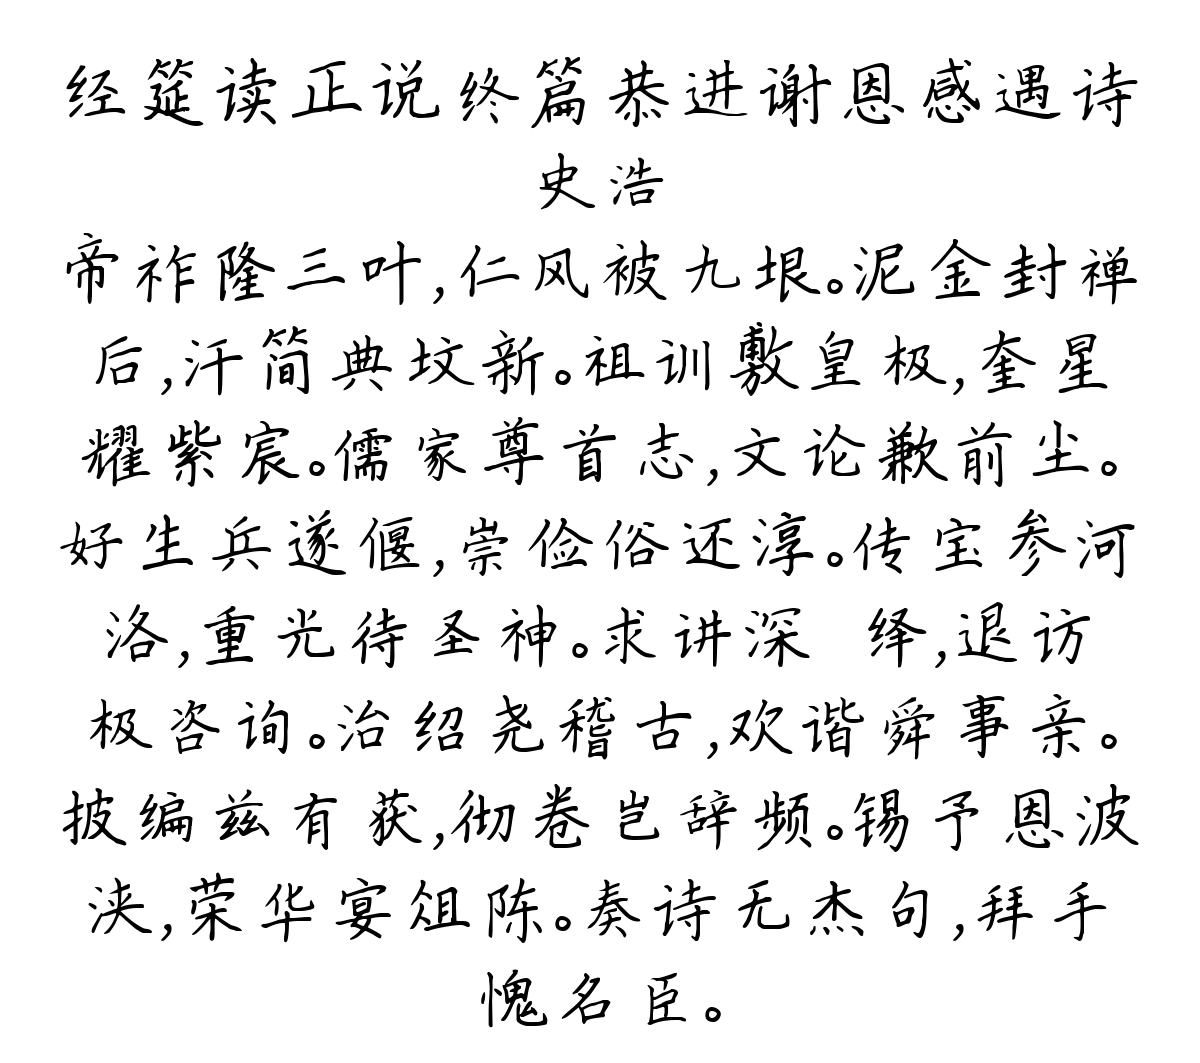 经筵读正说终篇恭进谢恩感遇诗
史浩
帝祚隆三叶,仁风被九垠。泥金封禅
后,汗简典坟新。祖训敷皇极,奎星
耀紫宸。儒家尊首志,文论歉前尘。
好生兵遂偃,崇俭俗还淳。传宝参河
洛,重光待圣神。求讲深 绎,退访
极咨询。治绍尧稽古,欢谐舜事亲。
披编兹有获,彻卷岂辞频。锡予恩波
浃,荣华宴俎陈。奏诗无杰句,拜手
愧名臣。